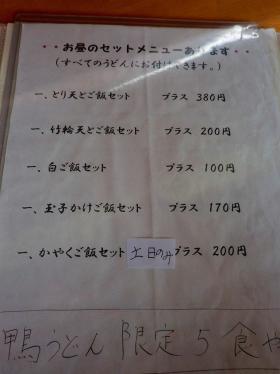 ・・お昼のセットメニューあります・・
(すべてのうどんにお付けできます。)
一、とり天とご飯セット プラス 380円
一、竹輪天とご飯セット プラス 200円
一、白ご飯セット プラス 100円
一、玉子かけご飯セット プラス 170円
一、かやくご飯セット 土日のみ プラス 200円
鴨うどん 限定5食や